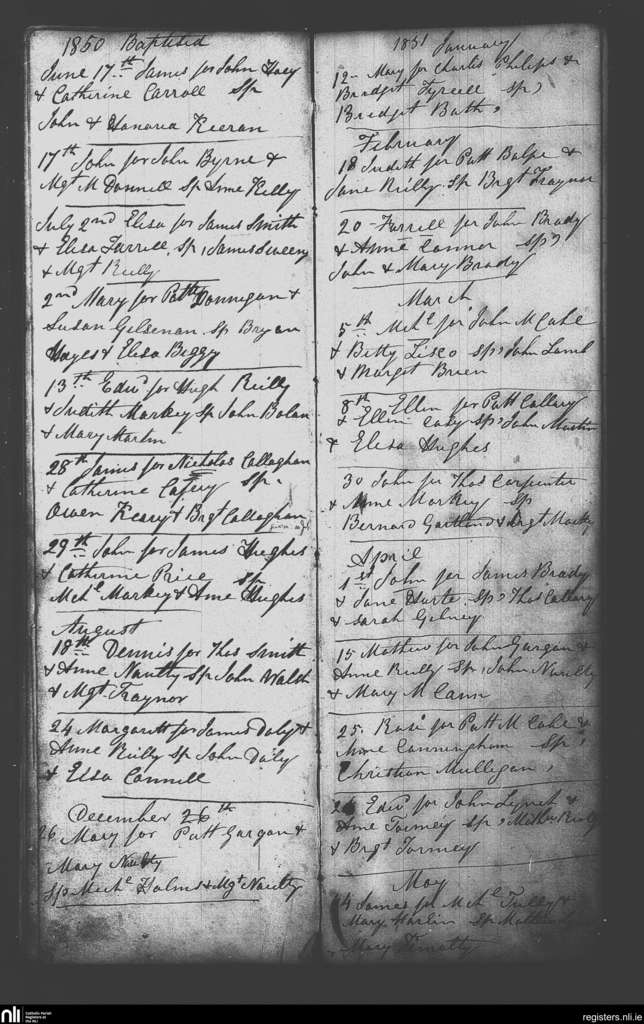 1850 Baptised
June 17th James for John Hoey
& Catherine Carroll Sp
John & Honaria Kieran
17th John for John Byrne &
Mgt McDonnell Sp Anne Kelly
July 2nd Elisa for James Smith
& Elisa Farrell, Sp, James Sweeny
& Mgt Reilly
2nd Mary for Patt Donnigan &
Susan Gilsenan Sp Bryan
Hayes & Elisa Biggy
13th Edwd for Hugh Reilly
& Judith Markey Sp John Bolan
& Mary Martin
28th James for Nicholas Callaghan
& Catherine Cafery Sp
Owen Keary & Brgt Callaghan
29th John for James Hughes
& Catherine Price Sp
Mchl Markey & Anne Hughes
August
18th Dennis for Thos Smith
& Anne Naulty Sp John Walsh
& Mgt Traynor
24 Margarett for James Daly &
Anne Reilly Sp John Daly
& Elsa Connell
December 26th
26 Mary for Patt Gargan &
Mary Naulty
Sp Michl Holmes & Mgt Naulty
1851 January
12 Mary for Charles Philips &
Bradget Tyrell Sp,
Bredget Bath,
February
18 Judith for Patt Balfe &
Jane Reilly Sp Brgt Traynor
20 Farrell for John Brady
& Anne Connor Sp,
John & Mary Brady
March
5th Mchl for John McCabe
& Betty Lisco Sp, John Lamb
& Marget Brien
8th Ellen for Patt Callary
& Ellen Casy Sp, John Martin
& Elesa Hughes
30 John for Thos Carpenter
& Anne Markey Sp
Bernard Gartland & Brgt Markey
April
1st John for James Brady
& Jane Harte Sp, Thos Callary
& Sarah Gibney
15 Mathew for John Gargan &
Anne Reilly Sp, John Naulty
& Mary McCann
25. Rose for Patt McCabe &
Anne Cunningham Sp,
Christian Mulligan,
Edwd for John Lynch &
Anne Tormey Sp, Reilly
& Brgt Tormey
May
James for Mchl Tully &
Mary Martin Sp
& Mary
nli
Catholic Parish
Registers at
the NLI
registers.nli.ie